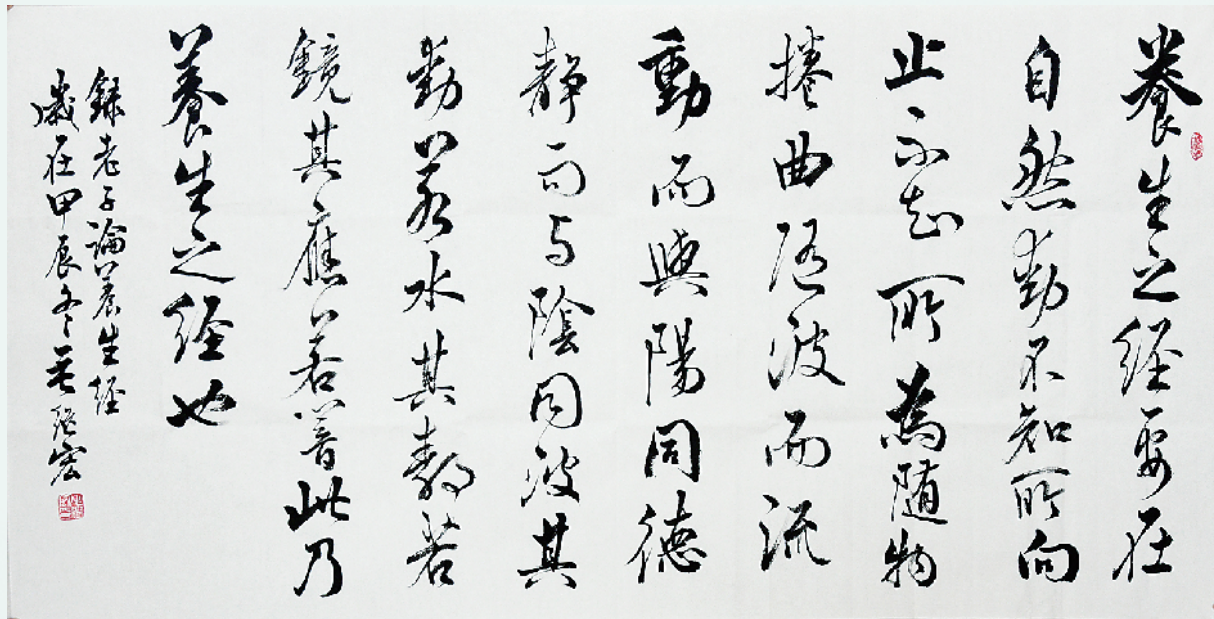 養生之经要在
自然動不知所向
止不知所為随物
捲曲随波而流
動而與陽同德
静而与陰同波其
動若水其静若
鏡其應若答此乃
養生之经也
錄老子論养生经
歲在甲辰冬